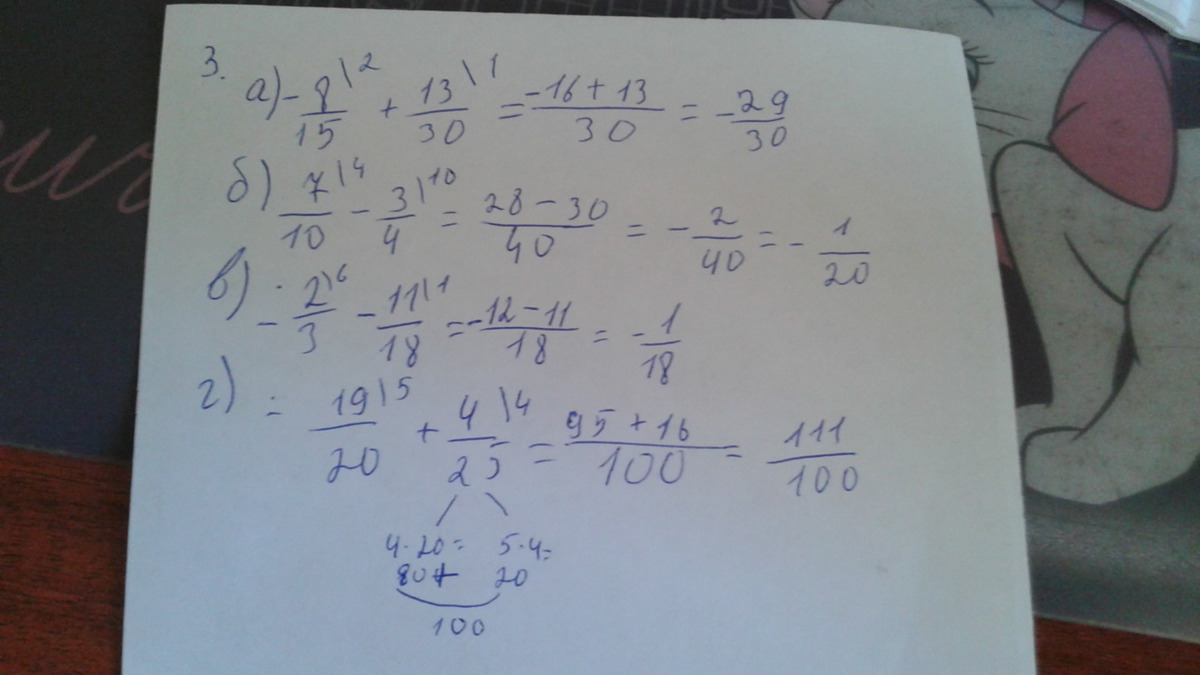 3.
а) -8\2/15 + 13\1/30 = -16+13/30 = -29/30
б) 7\4/10 - 3\10/4 = 28-30/40 = -2/40 = -1/20
в) -2\6/3 - 11\1/18 = -12-11/18 = -1/18
г) = 19\5/20 + 4\4/25 = 95+16/100 = 111/100
4·20= 5·4=
80+ 20
100